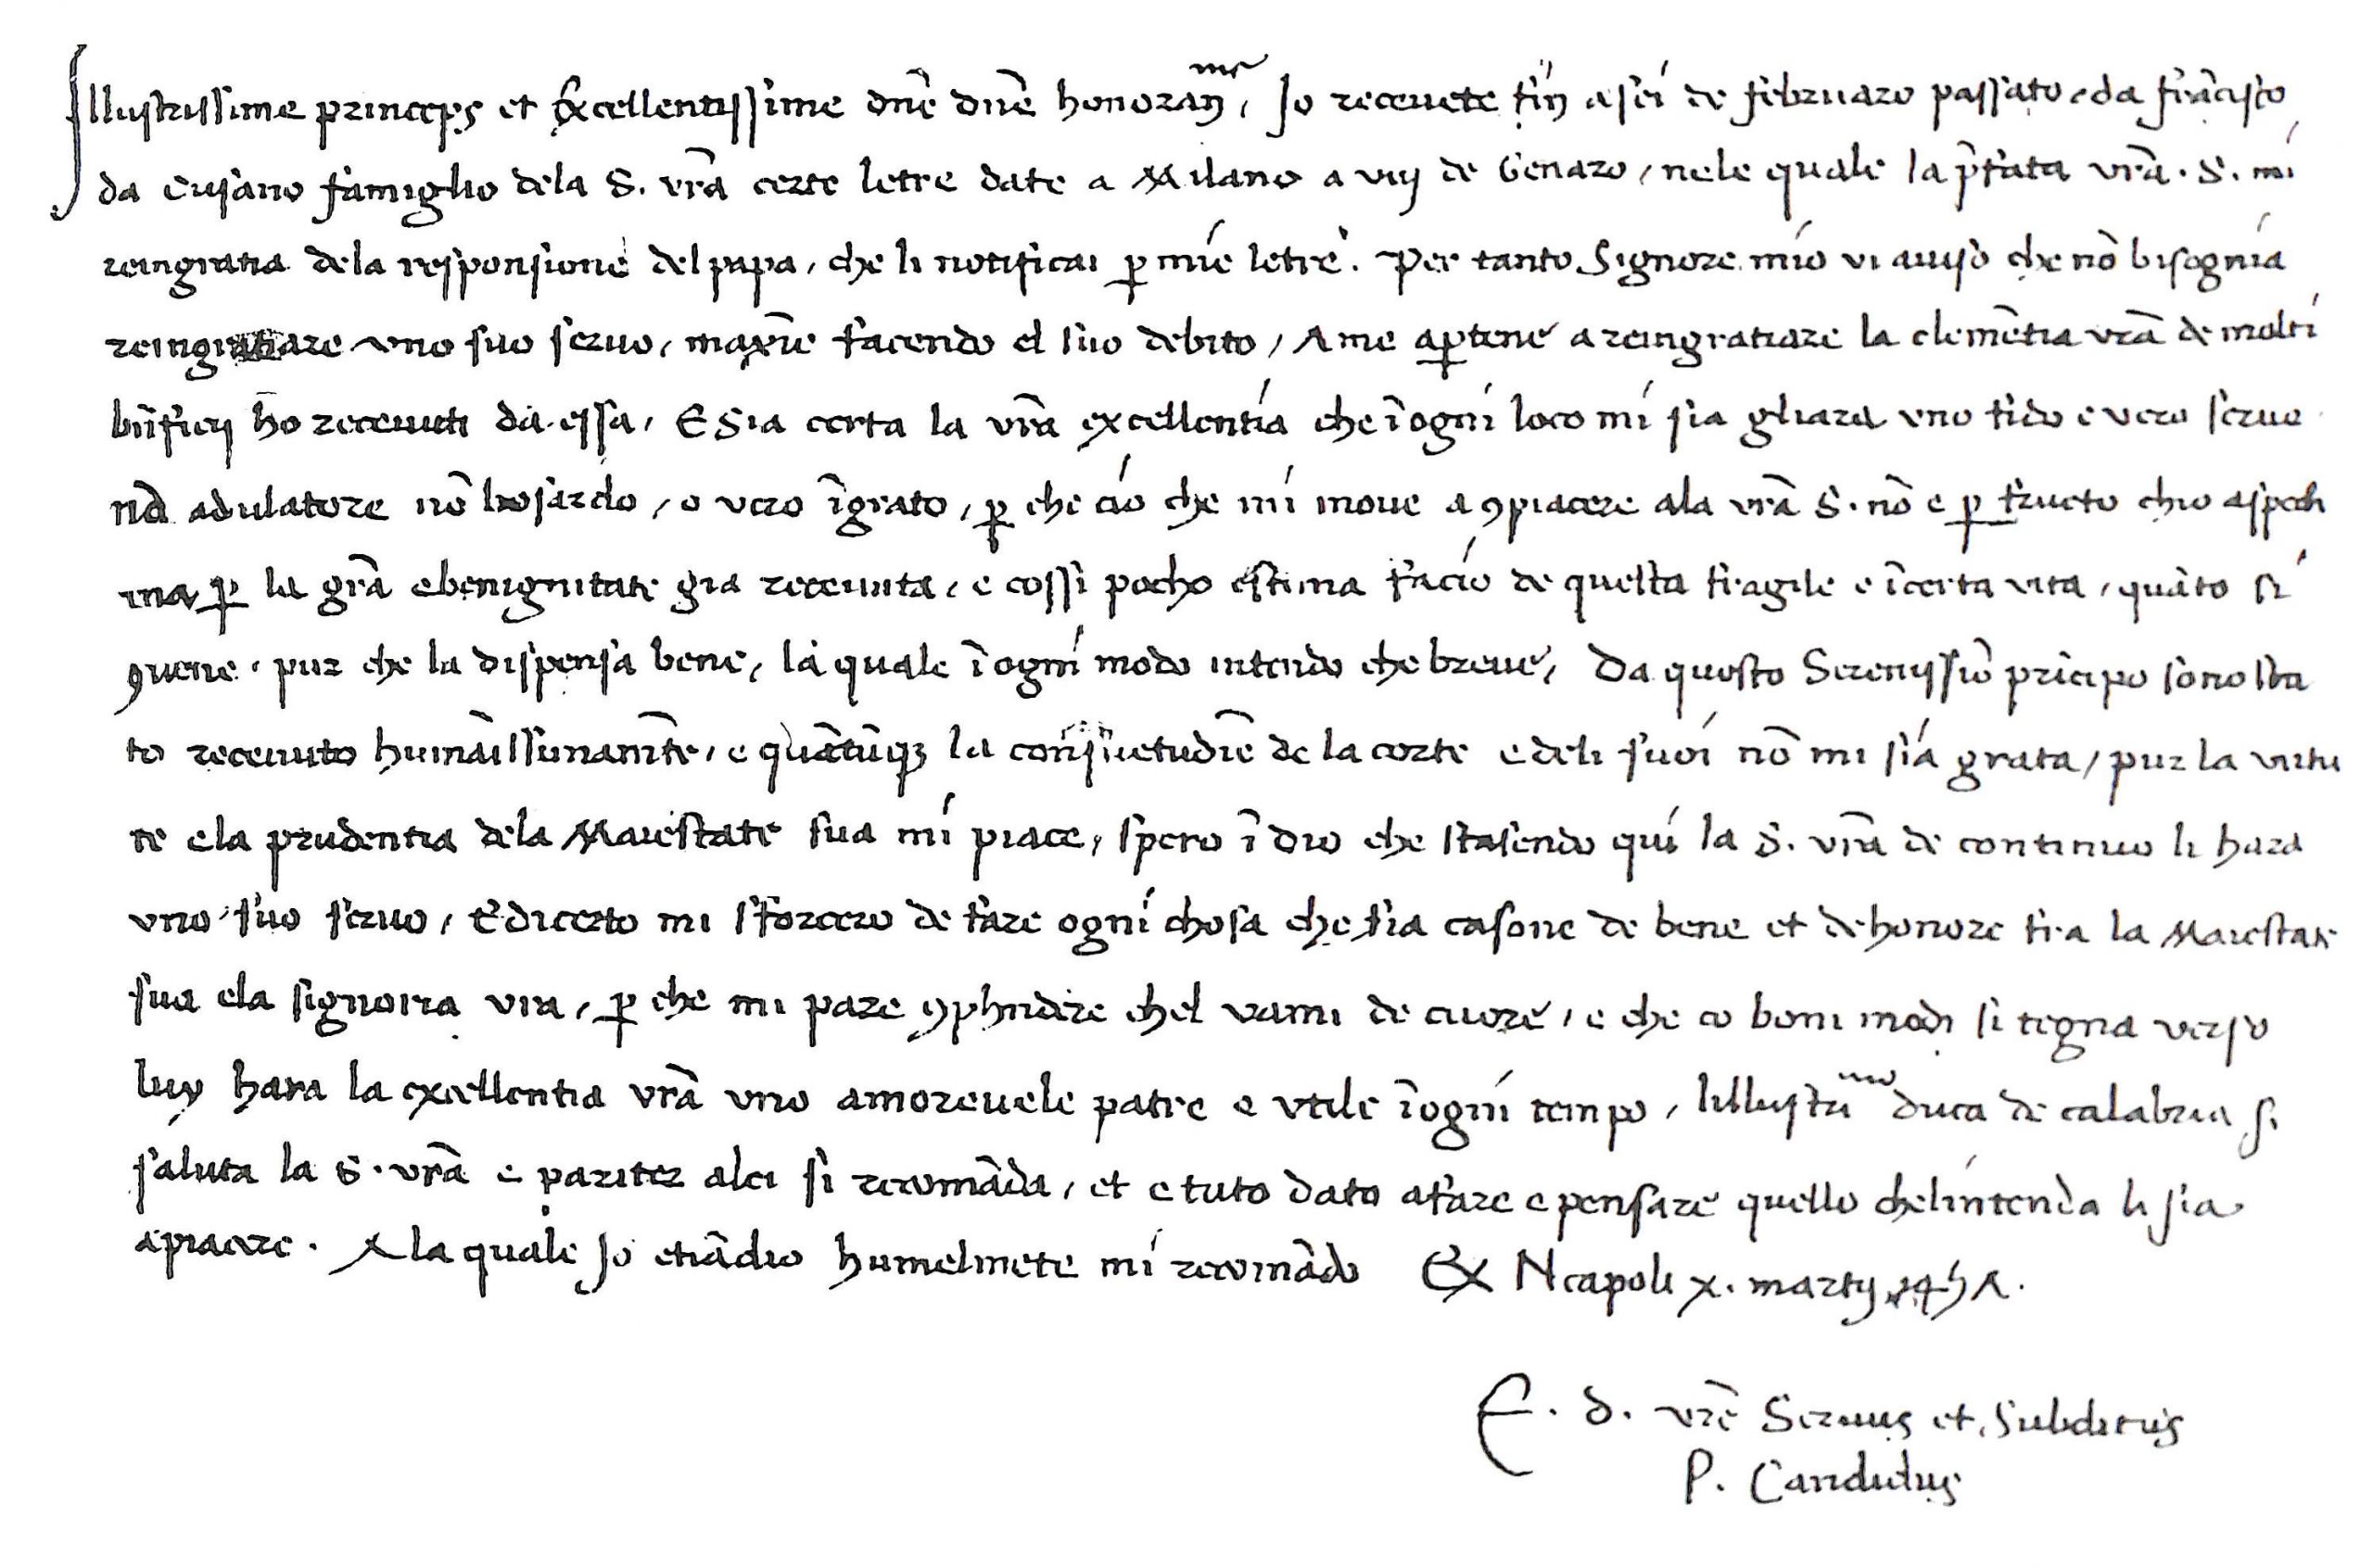 Illustrissime princeps et Excellentissime dnē dnē honoran^me, Io receuete fin a sei de februaro passato da frācisco
da Cusano famiglio dela S. vrā certe letre date a Milano a viij de Genaro, nele quale la p̄fata vrā. S. mi
reingratia dela responsione del papa, che li notificai ꝑ mie letre. Per tanto Signore mio vi auiso che nō bisognia
reingratiare uno suo seruo, maxīe facendo el suo debito, A me aꝑtene a reingratiare la clemētia vrā de molti
bn̄ficij ho receuuti da essa, E Sia certa la vrā excellentia che ī ogni loco mi sia gli ara uno fido e vero seruo
nō adulatore nō bosardo, o vero īgrato, ꝑ che cio che mi moue a ꝯpiacere ala vrā S. nō e ꝑ fructo chio aspecti
ma ꝑ la grā e benignitate gia receuuta, e cossi pocho estima facio de questa fragile e īcerta vita, quāto si
ꝯuene, pur che la dispensa bene, la quale ī ogni modo intendo che breue, Da questo Serenissīo prīcipo sono sta
to receuuto humāissimamēte, e quātūqꝫ la consuetudīe de la corte e deli suoi nō mi sia grata, pur la virtu
te e la prudentia dela Maiestate sua mi piace, spero ī dio che stasendo qui la S. vrā de continuo li hara
uno suo seruo, E di certo mi sforcero de fare ogni chosa che sia casone de bene et de honore fra la Maiestate
sua e la signoria vra, ꝑ che mi pare ꝯphndere chel vami de cuore, e che co boni modi si tegna verso
luy hara la excellentia vrā uno amoreuele patre e utile ī ogni tempo, lillustri^mo duca de calabria si
saluta la S. vrā e pariter alei si recomāda, et e tuto dato a fare e pensare quello chel intenda li sia
apiacere. A la quale Io etiādio humelmete mi recomādo Ex Neapoli x. martij 145A.
E. d. vrē Seruus et Subditus
P. Candidus